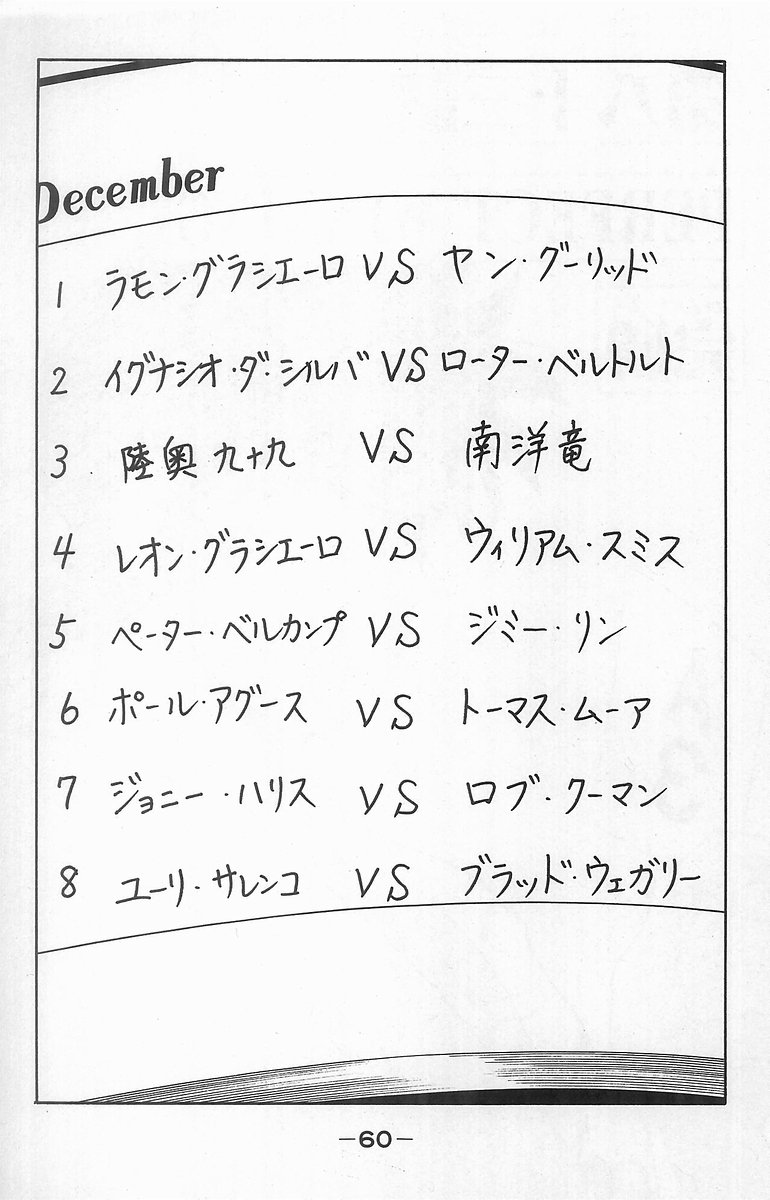 December
1 ラモン・グラシエーロ VS ヤン・グーリッド
2 イグナシオ・ダ・シルバ VS ローター・ベルトルト
3 陸奥九十九 VS 南洋竜
4 レオン・グラシエーロ VS ウィリアム・スミス
5 ペーター・ベルカンプ VS ジミー・リン
6 ポール・アグース VS トーマス・ムーア
7 ジョニー・ハリス VS ロブ・クーマン
8 ユーリ・サレンコ VS ブラッド・ウェガリー
—60—